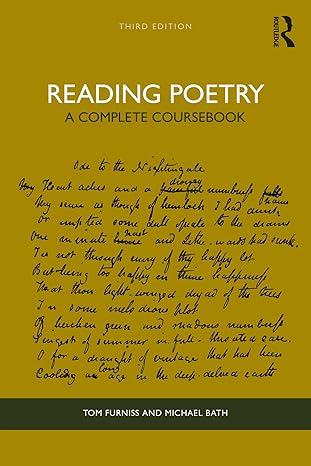 THIRD EDITION
ROUTLEDGE
READING POETRY
A COMPLETE COURSEBOOK
Ode to the Nightingale
drowsy
My Heart aches and a numbness
My sense as though of hemlock I had drunk
Or emptied some dull opiate to the drains
One minute and Lethe-wards had sunk.
Tis not through envy of thy happy lot
But being too happy in thine happiness
That thou light-winged dryad of the trees
In some melodious plot
Of beechen green and shadows numberless
Singest of summer in full-throated ease.
O for a draught of vintage that has been
long
Cooling an age in the deep-delved earth
TOM FURNISS AND MICHAEL BATH